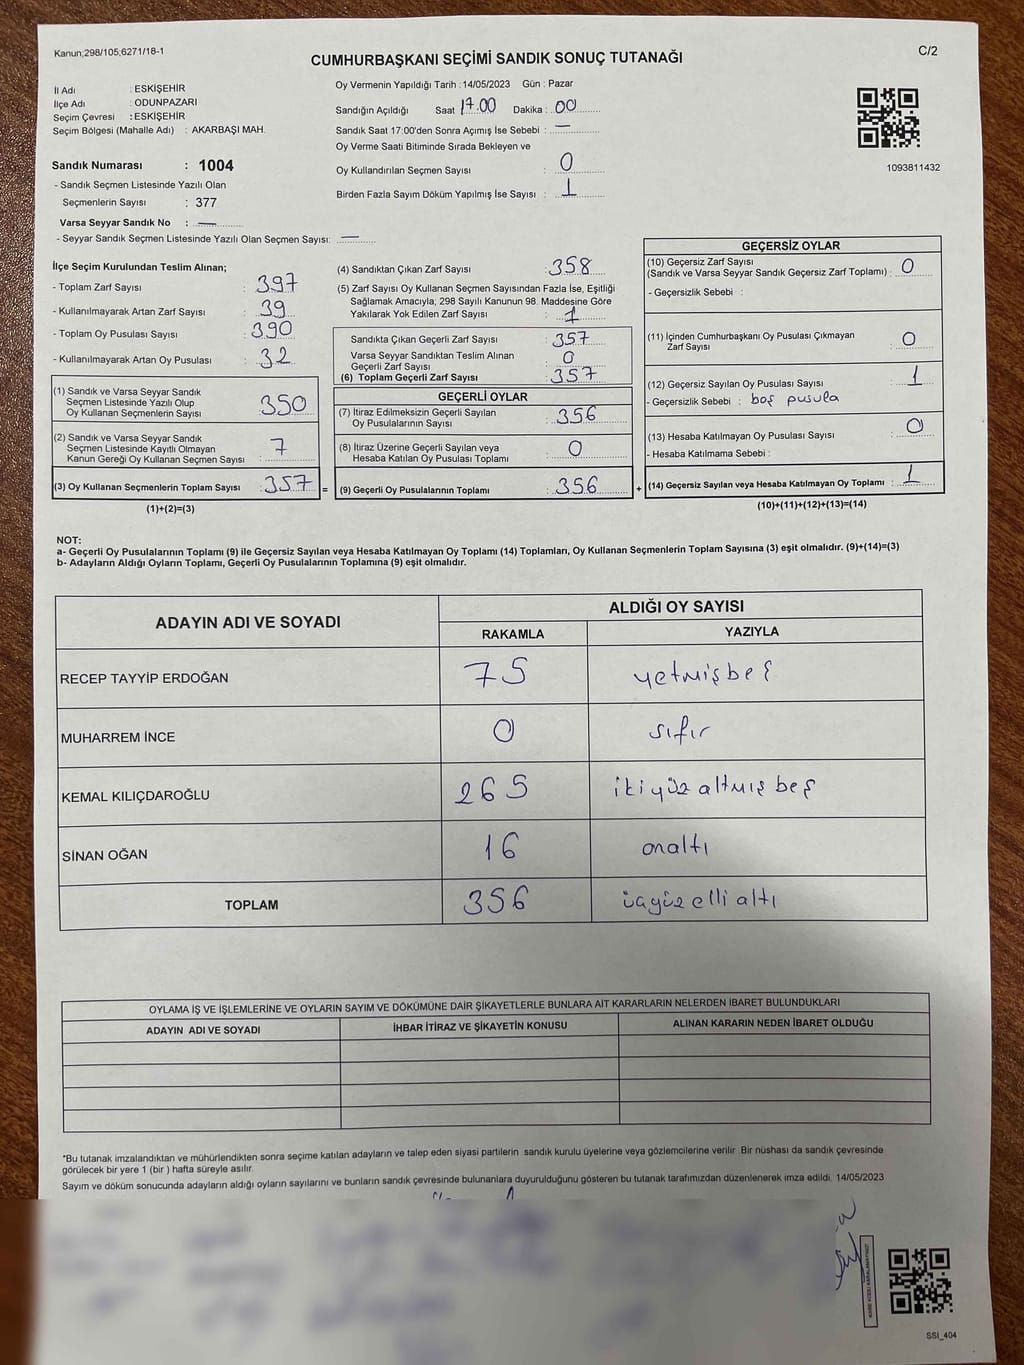 Kanun;298/105,6271/18-1
C/2
CUMHURBAŞKANI SEÇİMİ SANDIK SONUÇ TUTANAĞI
İl Adı : ESKİŞEHİR
İlçe Adı : ODUNPAZARI
Seçim Çevresi : ESKİŞEHİR
Seçim Bölgesi (Mahalle Adı) : AKARBAŞI MAH.
Sandık Numarası : 1004
- Sandık Seçmen Listesinde Yazılı Olan
Seçmenlerin Sayısı : 377
Varsa Seyyar Sandık No : —
- Seyyar Sandık Seçmen Listesinde Yazılı Olan Seçmen Sayısı: —
Oy Vermenin Yapıldığı Tarih : 14/05/2023 Gün : Pazar
Sandığın Açıldığı Saat 17.00 Dakika : 00
Sandık Saat 17:00'den Sonra Açımış İse Sebebi : —
Oy Verme Saati Bitiminde Sırada Bekleyen ve
Oy Kullandırılan Seçmen Sayısı : 0
Birden Fazla Sayım Döküm Yapılmış İse Sayısı : 1
1093811432
İlçe Seçim Kurulundan Teslim Alınan;
- Toplam Zarf Sayısı : 397
- Kullanılmayarak Artan Zarf Sayısı : 39
- Toplam Oy Pusulası Sayısı : 390
- Kullanılmayarak Artan Oy Pusulası : 32
(1) Sandık ve Varsa Seyyar Sandık
Seçmen Listesinde Yazılı Olup
Oy Kullanan Seçmenlerin Sayısı : 350
(2) Sandık ve Varsa Seyyar Sandık
Seçmen Listesinde Kayıtlı Olmayan
Kanun Gereği Oy Kullanan Seçmen Sayısı : 7
(3) Oy Kullanan Seçmenlerin Toplam Sayısı : 357 =
(1)+(2)=(3)
(4) Sandıktan Çıkan Zarf Sayısı : 358
(5) Zarf Sayısı Oy Kullanan Seçmen Sayısından Fazla İse, Eşitliği
Sağlamak Amacıyla; 298 Sayılı Kanunun 98. Maddesine Göre
Yakılarak Yok Edilen Zarf Sayısı : 1
Sandıkta Çıkan Geçerli Zarf Sayısı : 357
Varsa Seyyar Sandıktan Teslim Alınan
Geçerli Zarf Sayısı : 0
(6) Toplam Geçerli Zarf Sayısı : 357
GEÇERLİ OYLAR
(7) İtiraz Edilmeksizin Geçerli Sayılan
Oy Pusulalarının Sayısı : 356
(8) İtiraz Üzerine Geçerli Sayılan veya
Hesaba Katılan Oy Pusulası Toplamı : 0
(9) Geçerli Oy Pusulalarının Toplamı : 356 +
GEÇERSİZ OYLAR
(10) Geçersiz Zarf Sayısı
(Sandık ve Varsa Seyyar Sandık Geçersiz Zarf Toplamı) : 0
- Geçersizlik Sebebi :
(11) İçinden Cumhurbaşkanı Oy Pusulası Çıkmayan
Zarf Sayısı : 0
(12) Geçersiz Sayılan Oy Pusulası Sayısı : 1
- Geçersizlik Sebebi : boş pusula
(13) Hesaba Katılmayan Oy Pusulası Sayısı : 0
- Hesaba Katılmama Sebebi :
(14) Geçersiz Sayılan veya Hesaba Katılmayan Oy Toplamı : 1
(10)+(11)+(12)+(13)=(14)
NOT:
a- Geçerli Oy Pusulalarının Toplamı (9) ile Geçersiz Sayılan veya Hesaba Katılmayan Oy Toplamı (14) Toplamları, Oy Kullanan Seçmenlerin Toplam Sayısına (3) eşit olmalıdır. (9)+(14)=(3)
b- Adayların Aldığı Oyların Toplamı, Geçerli Oy Pusulalarının Toplamına (9) eşit olmalıdır.
ADAYIN ADI VE SOYADI
ALDIĞI OY SAYISI
RAKAMLA YAZIYLA
RECEP TAYYİP ERDOĞAN 75 yetmişbeş
MUHARREM İNCE 0 sıfır
KEMAL KILIÇDAROĞLU 265 ikiyüz altmış beş
SİNAN OĞAN 16 onaltı
TOPLAM 356 üçyüz elli altı
OYLAMA İŞ VE İŞLEMLERİNE VE OYLARIN SAYIM VE DÖKÜMÜNE DAİR ŞİKAYETLERLE BUNLARA AİT KARARLARIN NELERDEN İBARET BULUNDUKLARI
ADAYIN ADI VE SOYADI İHBAR İTİRAZ VE ŞİKAYETİN KONUSU ALINAN KARARIN NEDEN İBARET OLDUĞU
*Bu tutanak imzalandıktan ve mühürlendikten sonra seçime katılan adayların ve talep eden siyasi partilerin sandık kurulu üyelerine veya gözlemcilerine verilir. Bir nüshası da sandık çevresinde
görülecek bir yere 1 (bir ) hafta süreyle asılır.
Sayım ve döküm sonucunda adayların aldığı oyların sayılarını ve bunların sandık çevresinde bulunanlara duyurulduğunu gösteren bu tutanak tarafımızdan düzenlenerek imza edildi. 14/05/2023
SSI_404